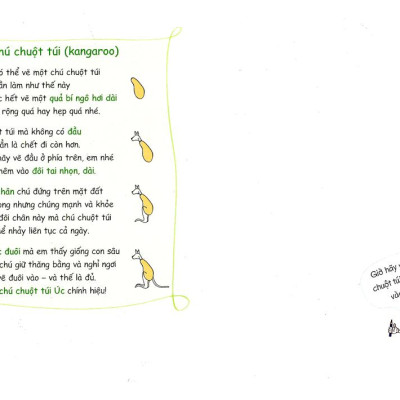 hú chuột túi (kangaroo)
ó thể vẽ một chú chuột túi
ần làm như thế này
c hết vẽ một quả bí ngô hơi dài
rộng quá hay hẹp quá nhé.
t túi mà không có đầu
ẳn là chết đi còn hơn.
hãy vẽ đầu ở phía trên, em nhé
hêm vào đôi tai nhọn, dài.
chân chú đứng trên mặt đất
ong nhưng chúng mạnh và khỏe
đôi chân này mà chú chuột túi
ể nhảy liên tục cả ngày.
c đuôi mà em thấy giống con sâu
chú giữ thăng bằng và nghỉ ngơi
vẽ đuôi vào – và thế là đủ.
chú chuột túi Úc chính hiệu!
Giờ hãy
chuột tú
và